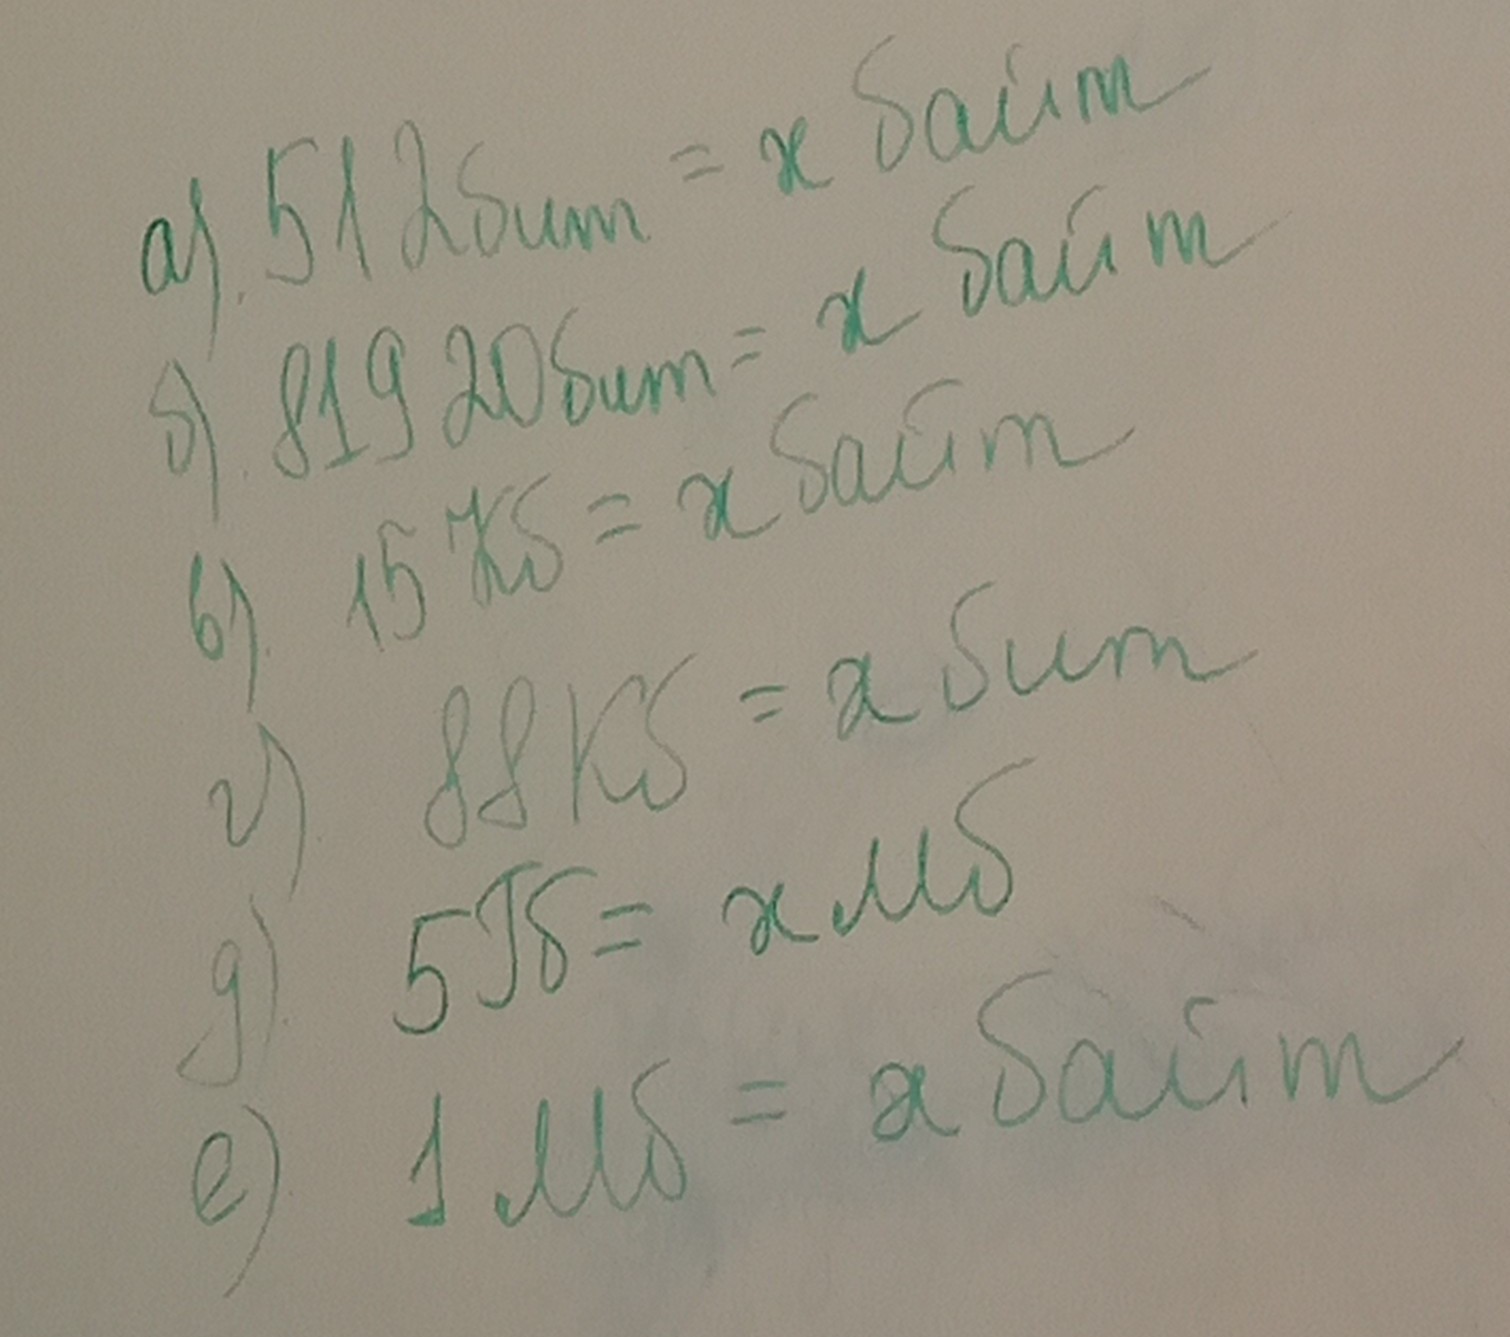 а). 512 бит = х байт
б). 81920 бит = х байт
в). 15 Кб = х байт
г). 88 Кб = х бит
д). 5 Гб = х Мб
е). 1 Мб = х байт